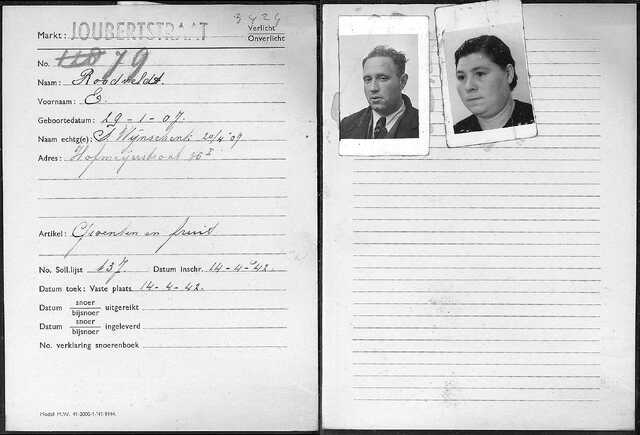 3424
Markt: JOUBERTSTRAAT
Verlicht
Onverlicht
No. 118 79
Naam: Roodveldt.
Voornaam: E.
Geboortedatum: 29-1-07.
Naam echtg(e): Wijnschenk 20/4 '09
Adres: Hofmeijrstraat 16 I
Artikel: Groenten en fruit
No. Soll.lijst 137. Datum inschr. 14-4-'42.
Datum toek: Vaste plaats 14-4-42.
Datum snoer bijsnoer uitgereikt
Datum snoer bijsnoer ingeleverd
No. verklaring snoerenboek
Model M.W.